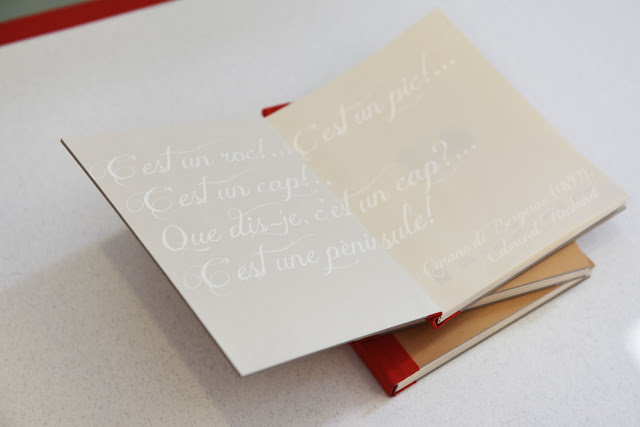 C'est un roc!... C'est un pic!...
C'est un cap!..
Que dis-je, c'est un cap?...
C'est une péninsule!
Cyrano de Bergerac (1897)
Edmond Rostand